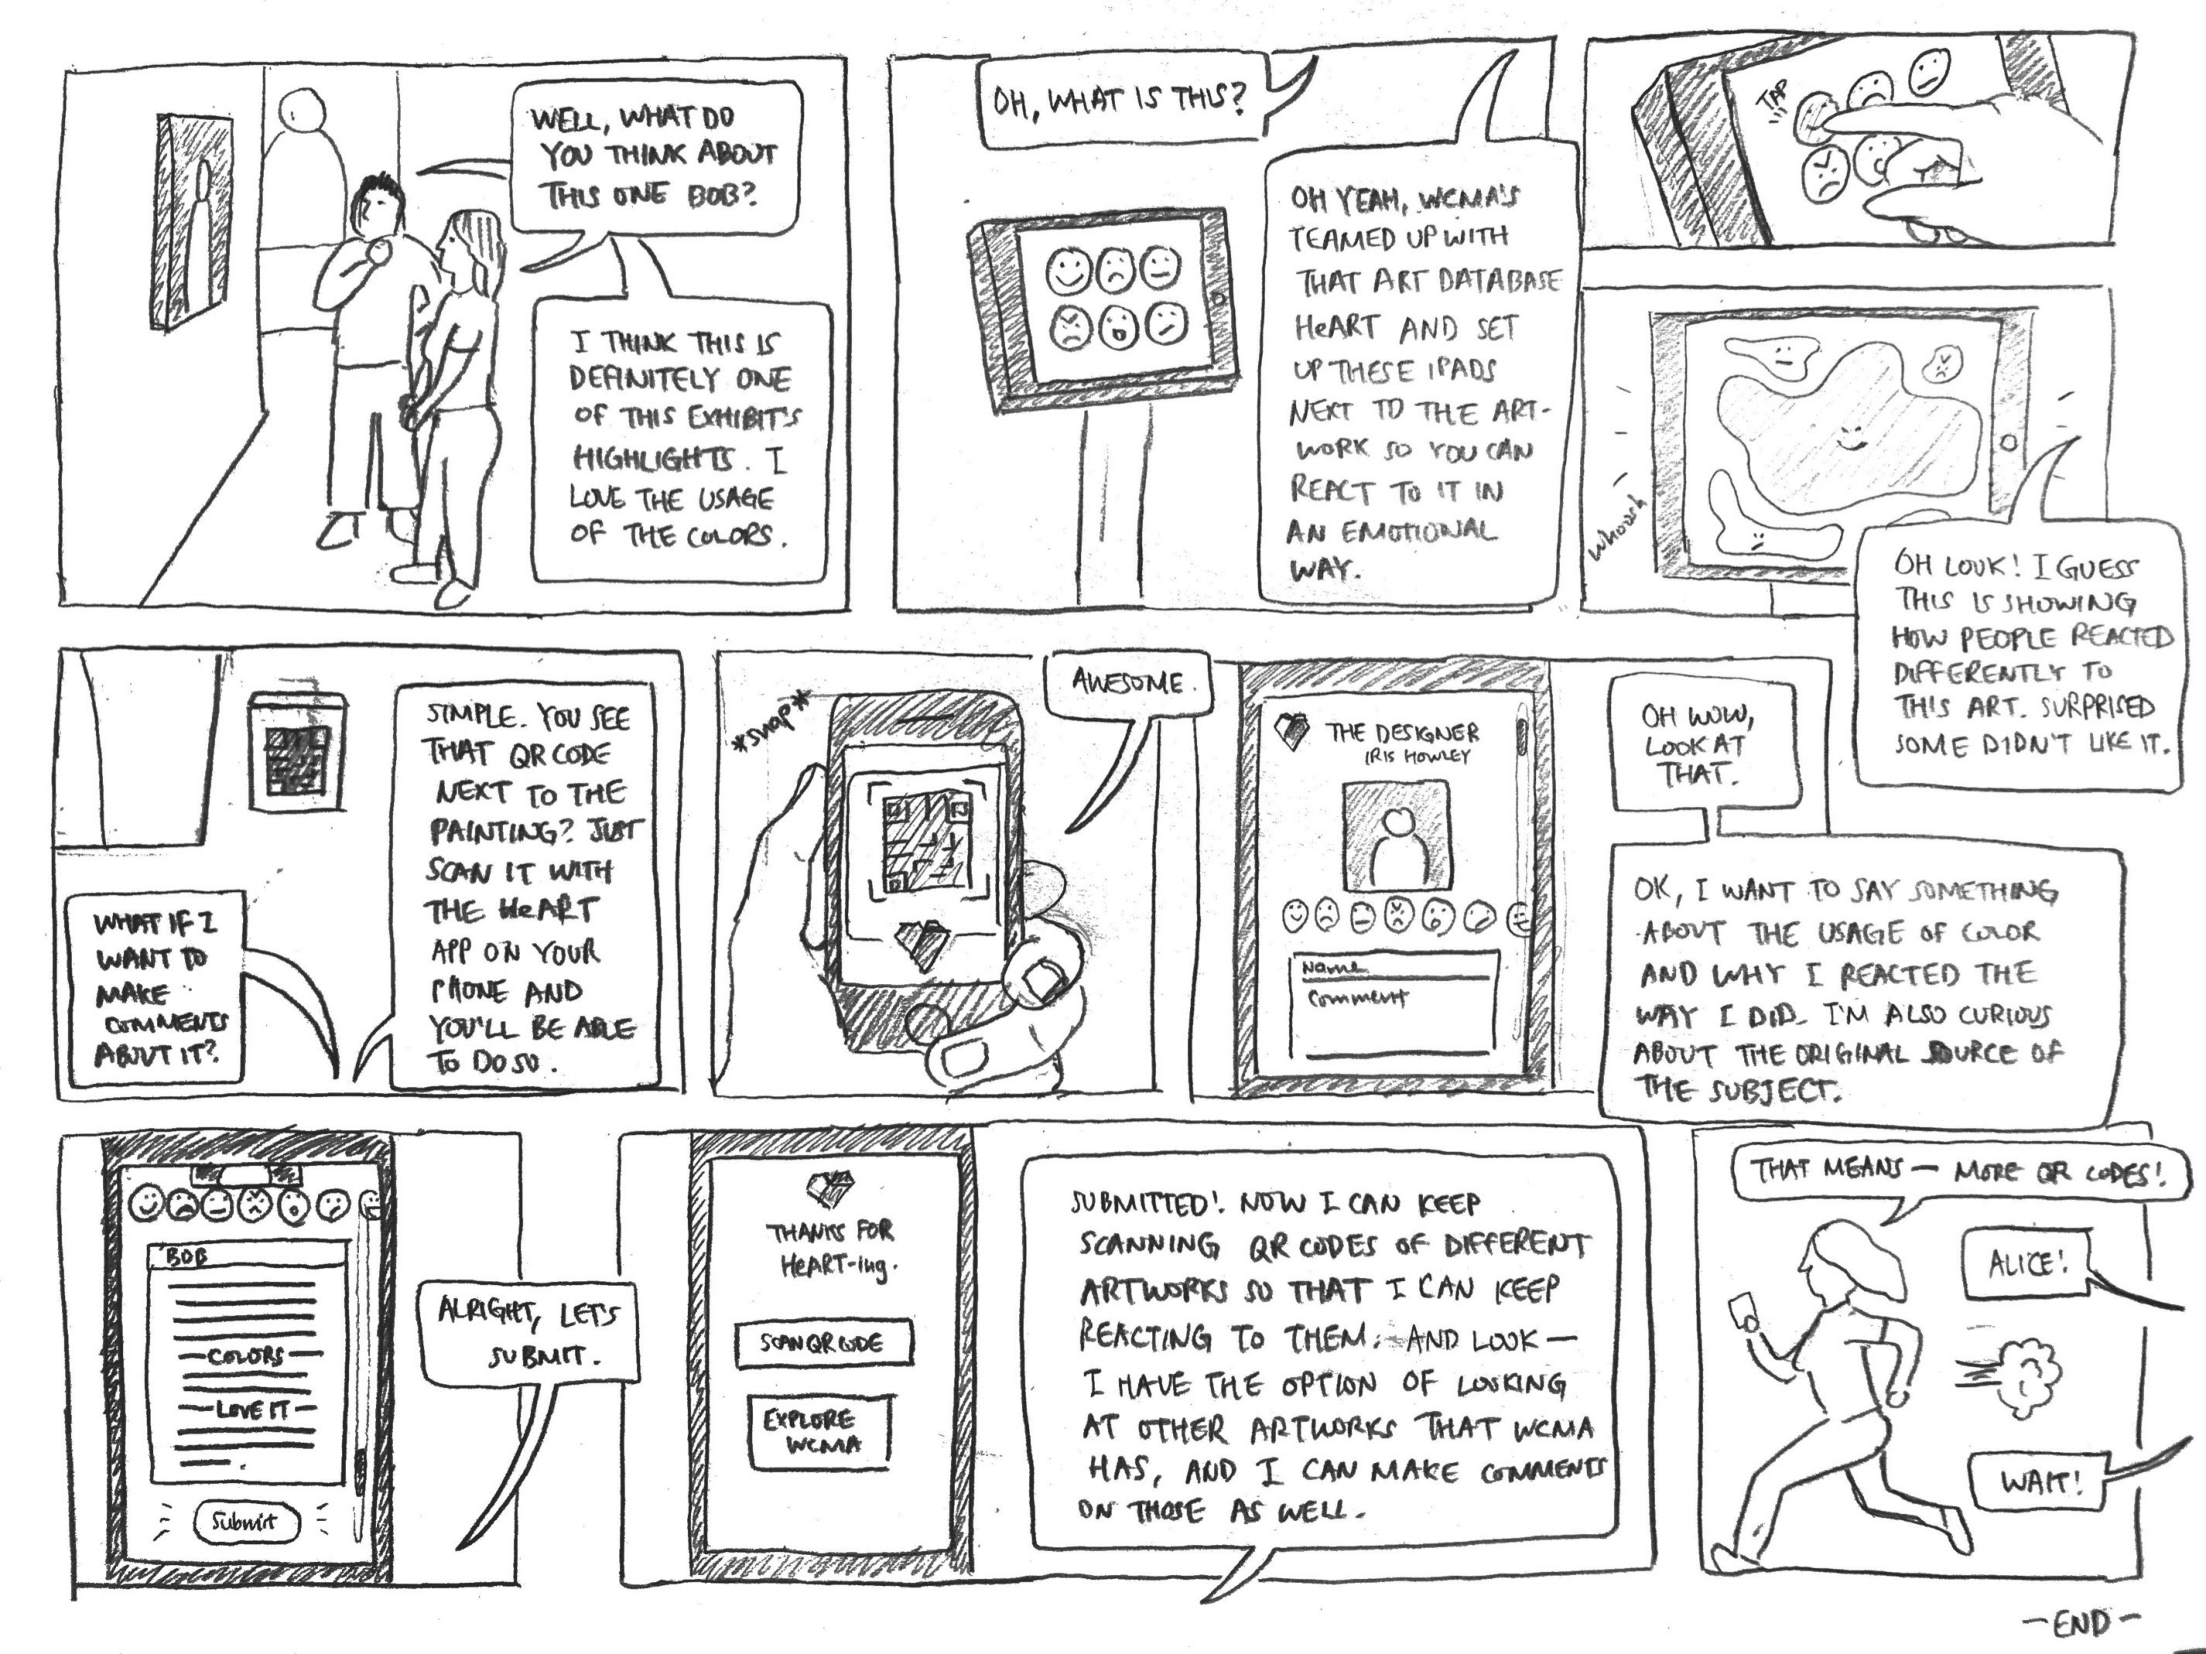 WELL, WHAT DO
YOU THINK ABOUT
THIS ONE BOB?
I THINK THIS IS
DEFINITELY ONE
OF THIS EXHIBIT'S
HIGHLIGHTS. I
LOVE THE USAGE
OF THE COLORS.
OH, WHAT IS THIS?
OH YEAH, WCMA'S
TEAMED UP WITH
THAT ART DATABASE
HeART AND SET
UP THESE IPADS
NEXT TO THE ART-
WORK SO YOU CAN
REACT TO IT IN
AN EMOTIONAL
WAY.
TAP
Whoosh
OH LOOK! I GUESS
THIS IS SHOWING
HOW PEOPLE REACTED
DIFFERENTLY TO
THIS ART. SURPRISED
SOME DIDN'T LIKE IT.
WHAT IF I
WANT TO
MAKE
COMMENTS
ABOUT IT?
SIMPLE. YOU SEE
THAT QR CODE
NEXT TO THE
PAINTING? JUST
SCAN IT WITH
THE HeART
APP ON YOUR
PHONE AND
YOU'LL BE ABLE
TO DO SO.
*snap*
AWESOME.
THE DESIGNER
IRIS HOWLEY
Name
Comment
OH WOW,
LOOK AT
THAT.
OK, I WANT TO SAY SOMETHING
ABOUT THE USAGE OF COLOR
AND WHY I REACTED THE
WAY I DID. I'M ALSO CURIOUS
ABOUT THE ORIGINAL SOURCE OF
THE SUBJECT.
BOB
COLORS
LOVE IT
Submit
ALRIGHT, LET'S
SUBMIT.
THANKS FOR
HeART-ing.
SCAN QR CODE
EXPLORE
WCMA
SUBMITTED! NOW I CAN KEEP
SCANNING QR CODES OF DIFFERENT
ARTWORKS SO THAT I CAN KEEP
REACTING TO THEM. AND LOOK—
I HAVE THE OPTION OF LOOKING
AT OTHER ARTWORKS THAT WCMA
HAS, AND I CAN MAKE COMMENTS
ON THOSE AS WELL.
THAT MEANS — MORE QR CODES!
ALICE!
WAIT!
—END—